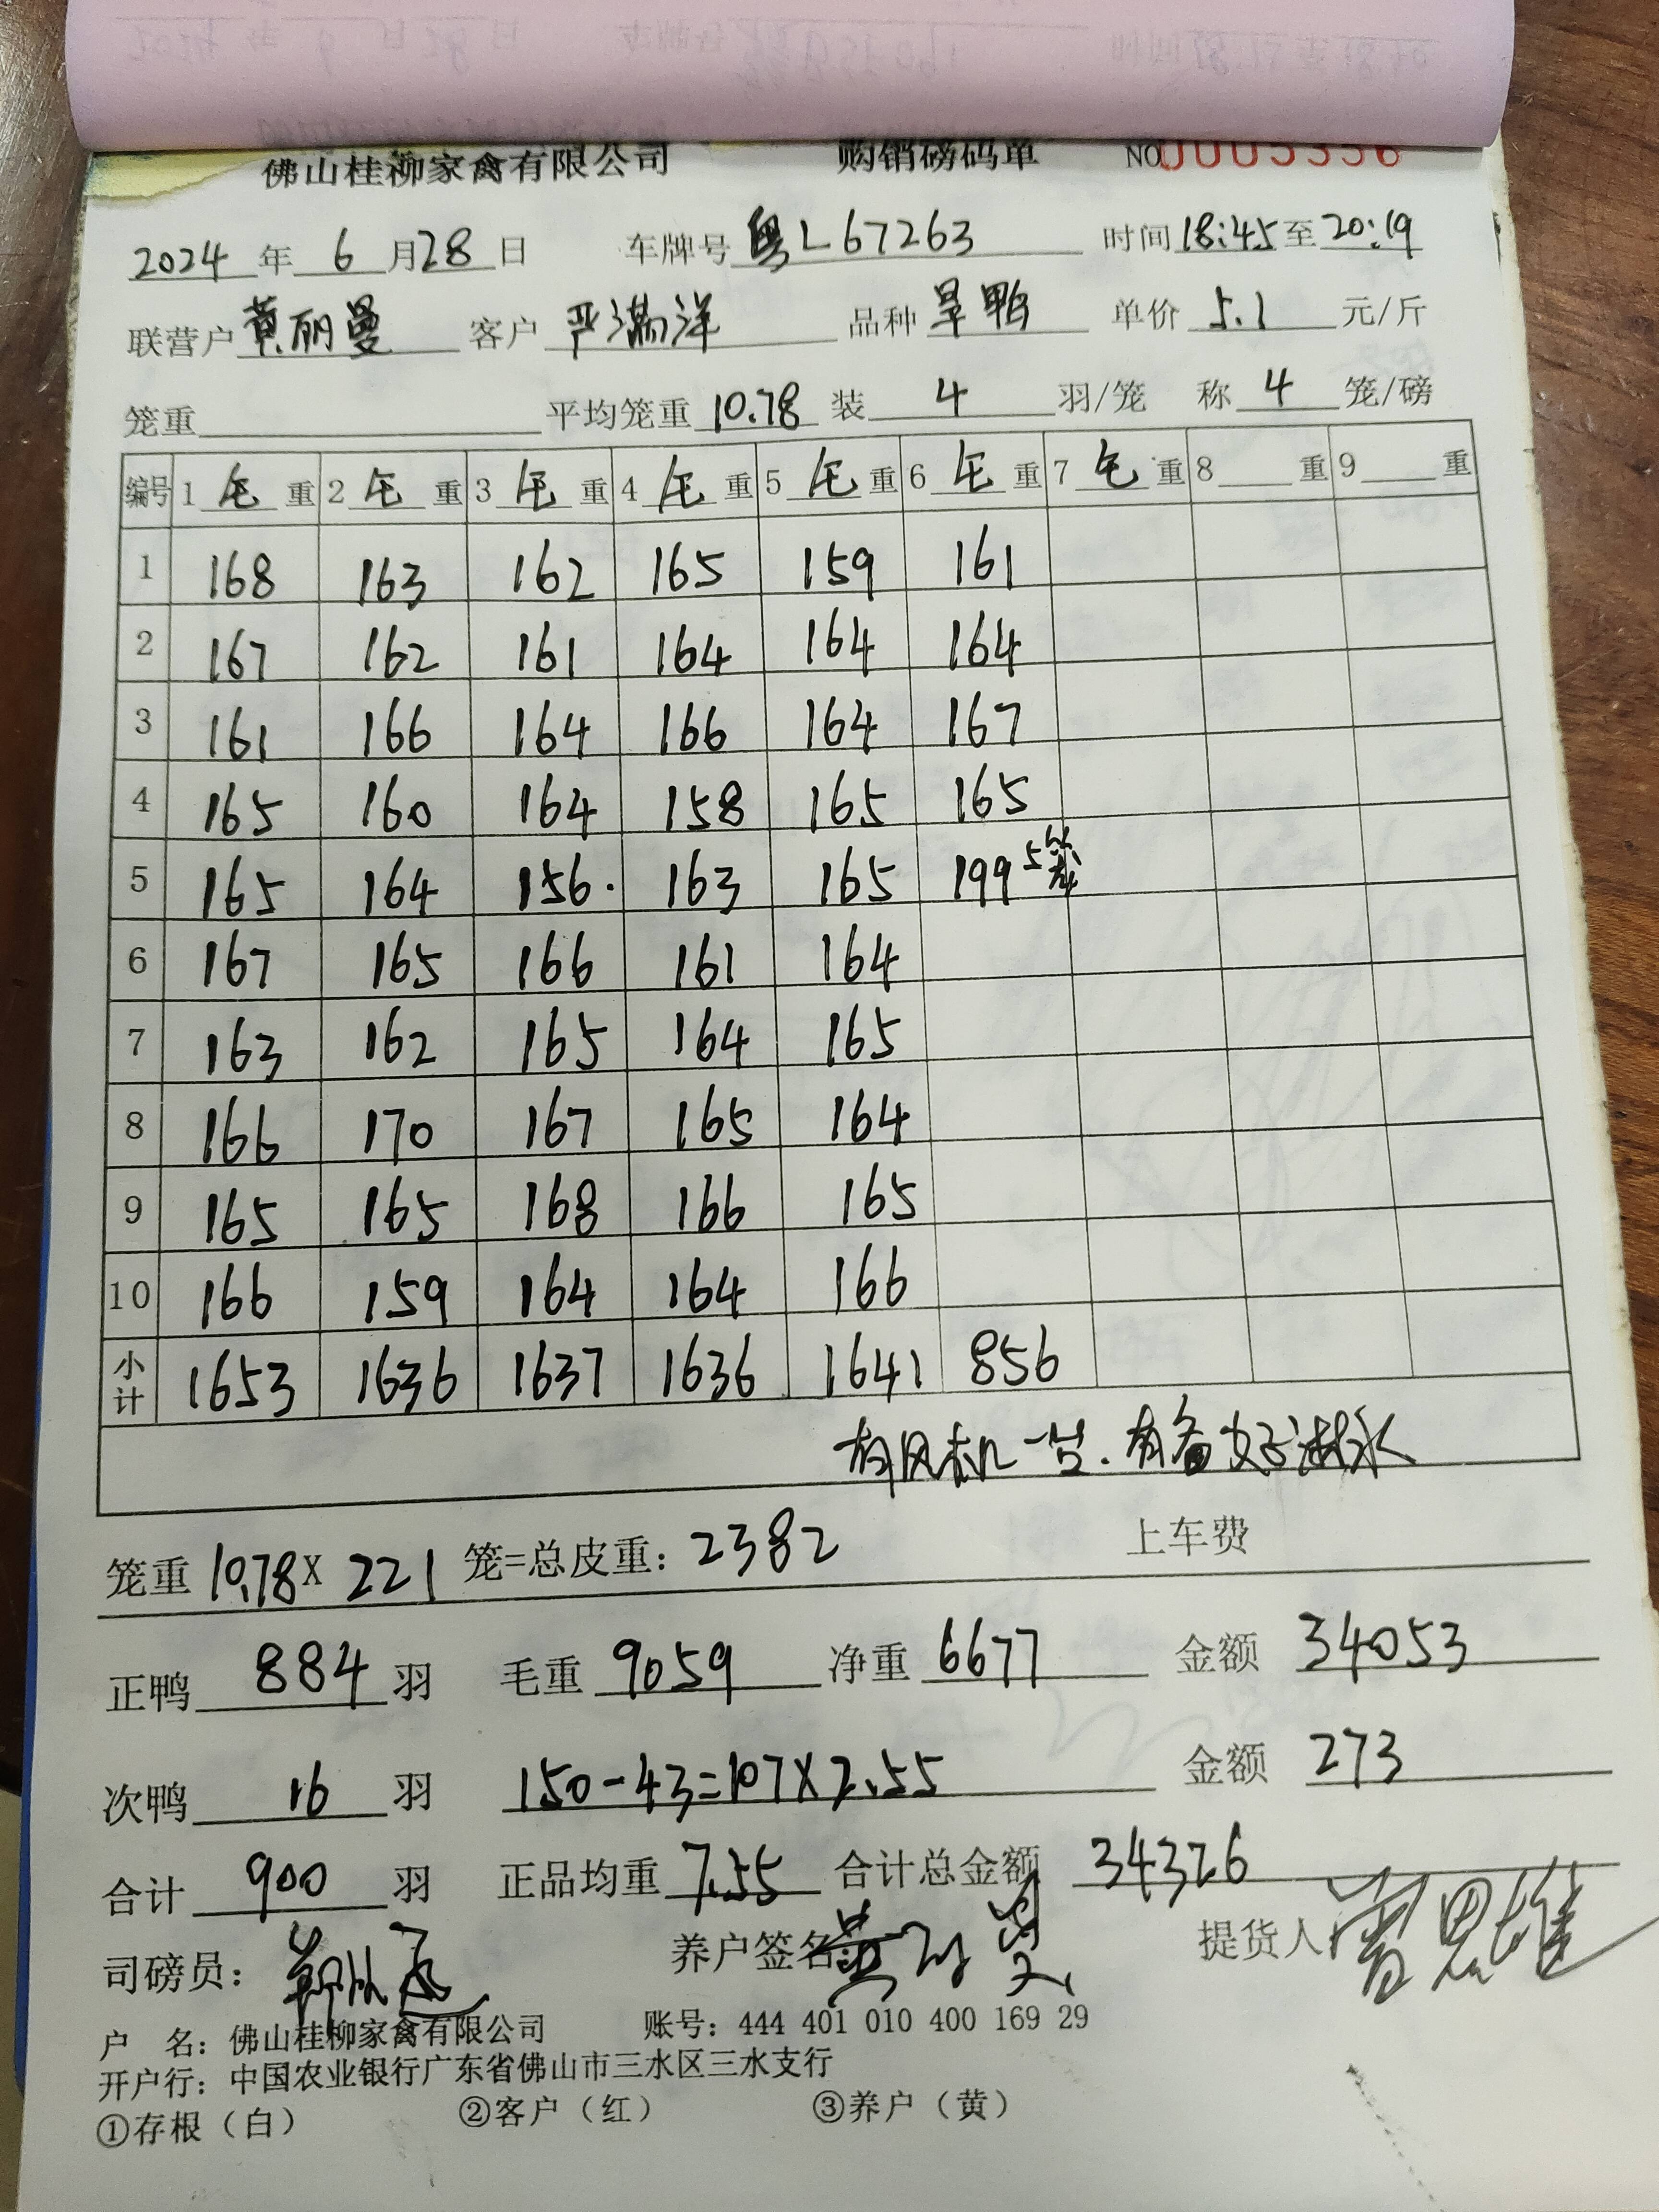 佛山桂柳家禽有限公司 购销磅码单 NO 0005356
2024 年 6 月 28 日 车牌号 粤L67263 时间 18:45 至 20:19
联营户 黄丽曼 客户 严满洋 品种 旱鸭 单价 5.1 元/斤
笼重 平均笼重 10.78 装 4 羽/笼 称 4 笼/磅
编号 1 毛 重 2 毛 重 3 毛 重 4 毛 重 5 毛 重 6 毛 重 7 毛 重 8 重 9 重
1 168 163 162 165 159 161
2 167 162 161 164 164 164
3 161 166 164 166 164 167
4 165 160 164 158 165 165
5 165 164 156. 163 165 199 5笼
6 167 165 166 161 164
7 163 162 165 164 165
8 166 170 167 165 164
9 165 165 168 166 165
10 166 159 164 164 166
小计 1653 1636 1637 1636 1641 856
有风机一台.有备好淋水
笼重 10.78 X 221 笼=总皮重: 2382 上车费
正鸭 884 羽 毛重 9059 净重 6677 金额 34053
次鸭 16 羽 150-43=107X2.55 金额 273
合计 900 羽 正品均重 7.55 合计总金额 34326
司磅员: 养户签名 黄丽曼 提货人
户 名: 佛山桂柳家禽有限公司 账号: 444 401 010 400 169 29
开户行: 中国农业银行广东省佛山市三水区三水支行
①存根(白) ②客户(红) ③养户(黄)